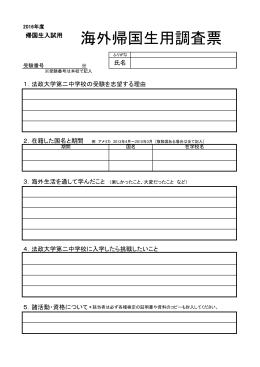 2016年度
帰国生入試用
海外帰国生用調査票
ふりがな
受験番号 ※
氏名
※受験番号は本校で記入
1．法政大学第二中学校の受験を志望する理由
2．在籍した国名と期間 例 アメリカ 2013年4月～2015年3月 （複数国ある場合は全て記入）
期間 国名 在学校名
3．海外生活を通して学んだこと （楽しかったこと、大変だったこと など）
4．法政大学第二中学校に入学したら挑戦したいこと
5．諸活動・資格について ＊該当者は必ず各種検定の証明書や資料のコピーも封入してください。